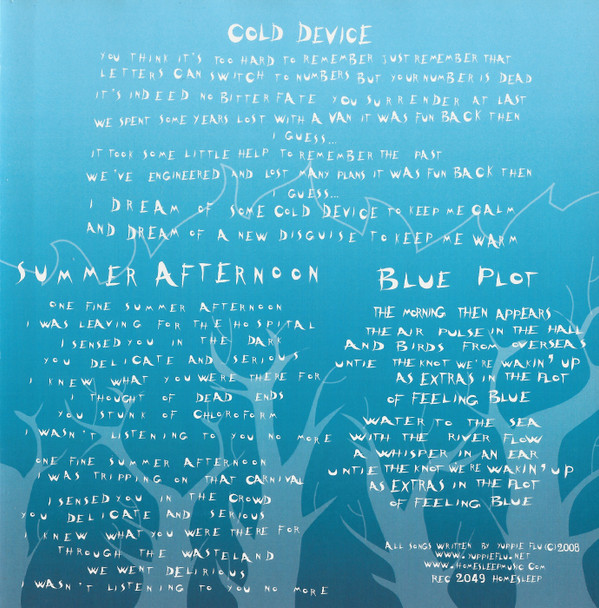 COLD DEVICE
YOU THINK IT'S TOO HARD TO REMEMBER JUST REMEMBER THAT
LETTERS CAN SWITCH TO NUMBERS BUT YOUR NUMBER IS DEAD
IT'S INDEED NO BITTER FATE YOU SURRENDER AT LAST
WE SPENT SOME YEARS LOST WITH A VAN IT WAS FUN BACK THEN
I GUESS...
IT TOOK SOME LITTLE HELP TO REMEMBER THE PAST
WE'VE ENGINEERED AND LOST MANY PLANS IT WAS FUN BACK THEN
I GUESS...
I DREAM OF SOME COLD DEVICE TO KEEP ME CALM
AND DREAM OF A NEW DISGUISE TO KEEP ME WARM
SUMMER AFTERNOON
ONE FINE SUMMER AFTERNOON
I WAS LEAVING FOR THE HOSPITAL
I SENSED YOU IN THE DARK
YOU DELICATE AND SERIOUS
I KNEW WHAT YOU WERE THERE FOR
I THOUGHT OF DEAD ENDS
YOU STUNK OF CHLOROFORM
I WASN'T LISTENING TO YOU NO MORE
ONE FINE SUMMER AFTERNOON
I WAS TRIPPING ON THAT CARNIVAL
I SENSED YOU IN THE CROWD
YOU DELICATE AND SERIOUS
I KNEW WHAT YOU WERE THERE FOR
THROUGH THE WASTELAND
WE WENT DELIRIOUS
I WASN'T LISTENING TO YOU NO MORE
BLUE PLOT
THE MORNING THEN APPEARS
THE AIR PULSE IN THE HALL
AND BIRDS FROM OVERSEAS
UNTIE THE KNOT WE'RE WAKIN' UP
AS EXTRAS IN THE PLOT
OF FEELING BLUE
WATER TO THE SEA
WITH THE RIVER FLOW
A WHISPER IN AN EAR
UNTIE THE KNOT WE'RE WAKIN' UP
AS EXTRAS IN THE PLOT
OF FEELING BLUE
ALL SONGS WRITTEN BY YUPPIE FLU (C) 2008
WWW.YUPPIEFLU.NET
WWW.HOMESLEEPMUSIC.COM
REC 2049 HOMESLEEP